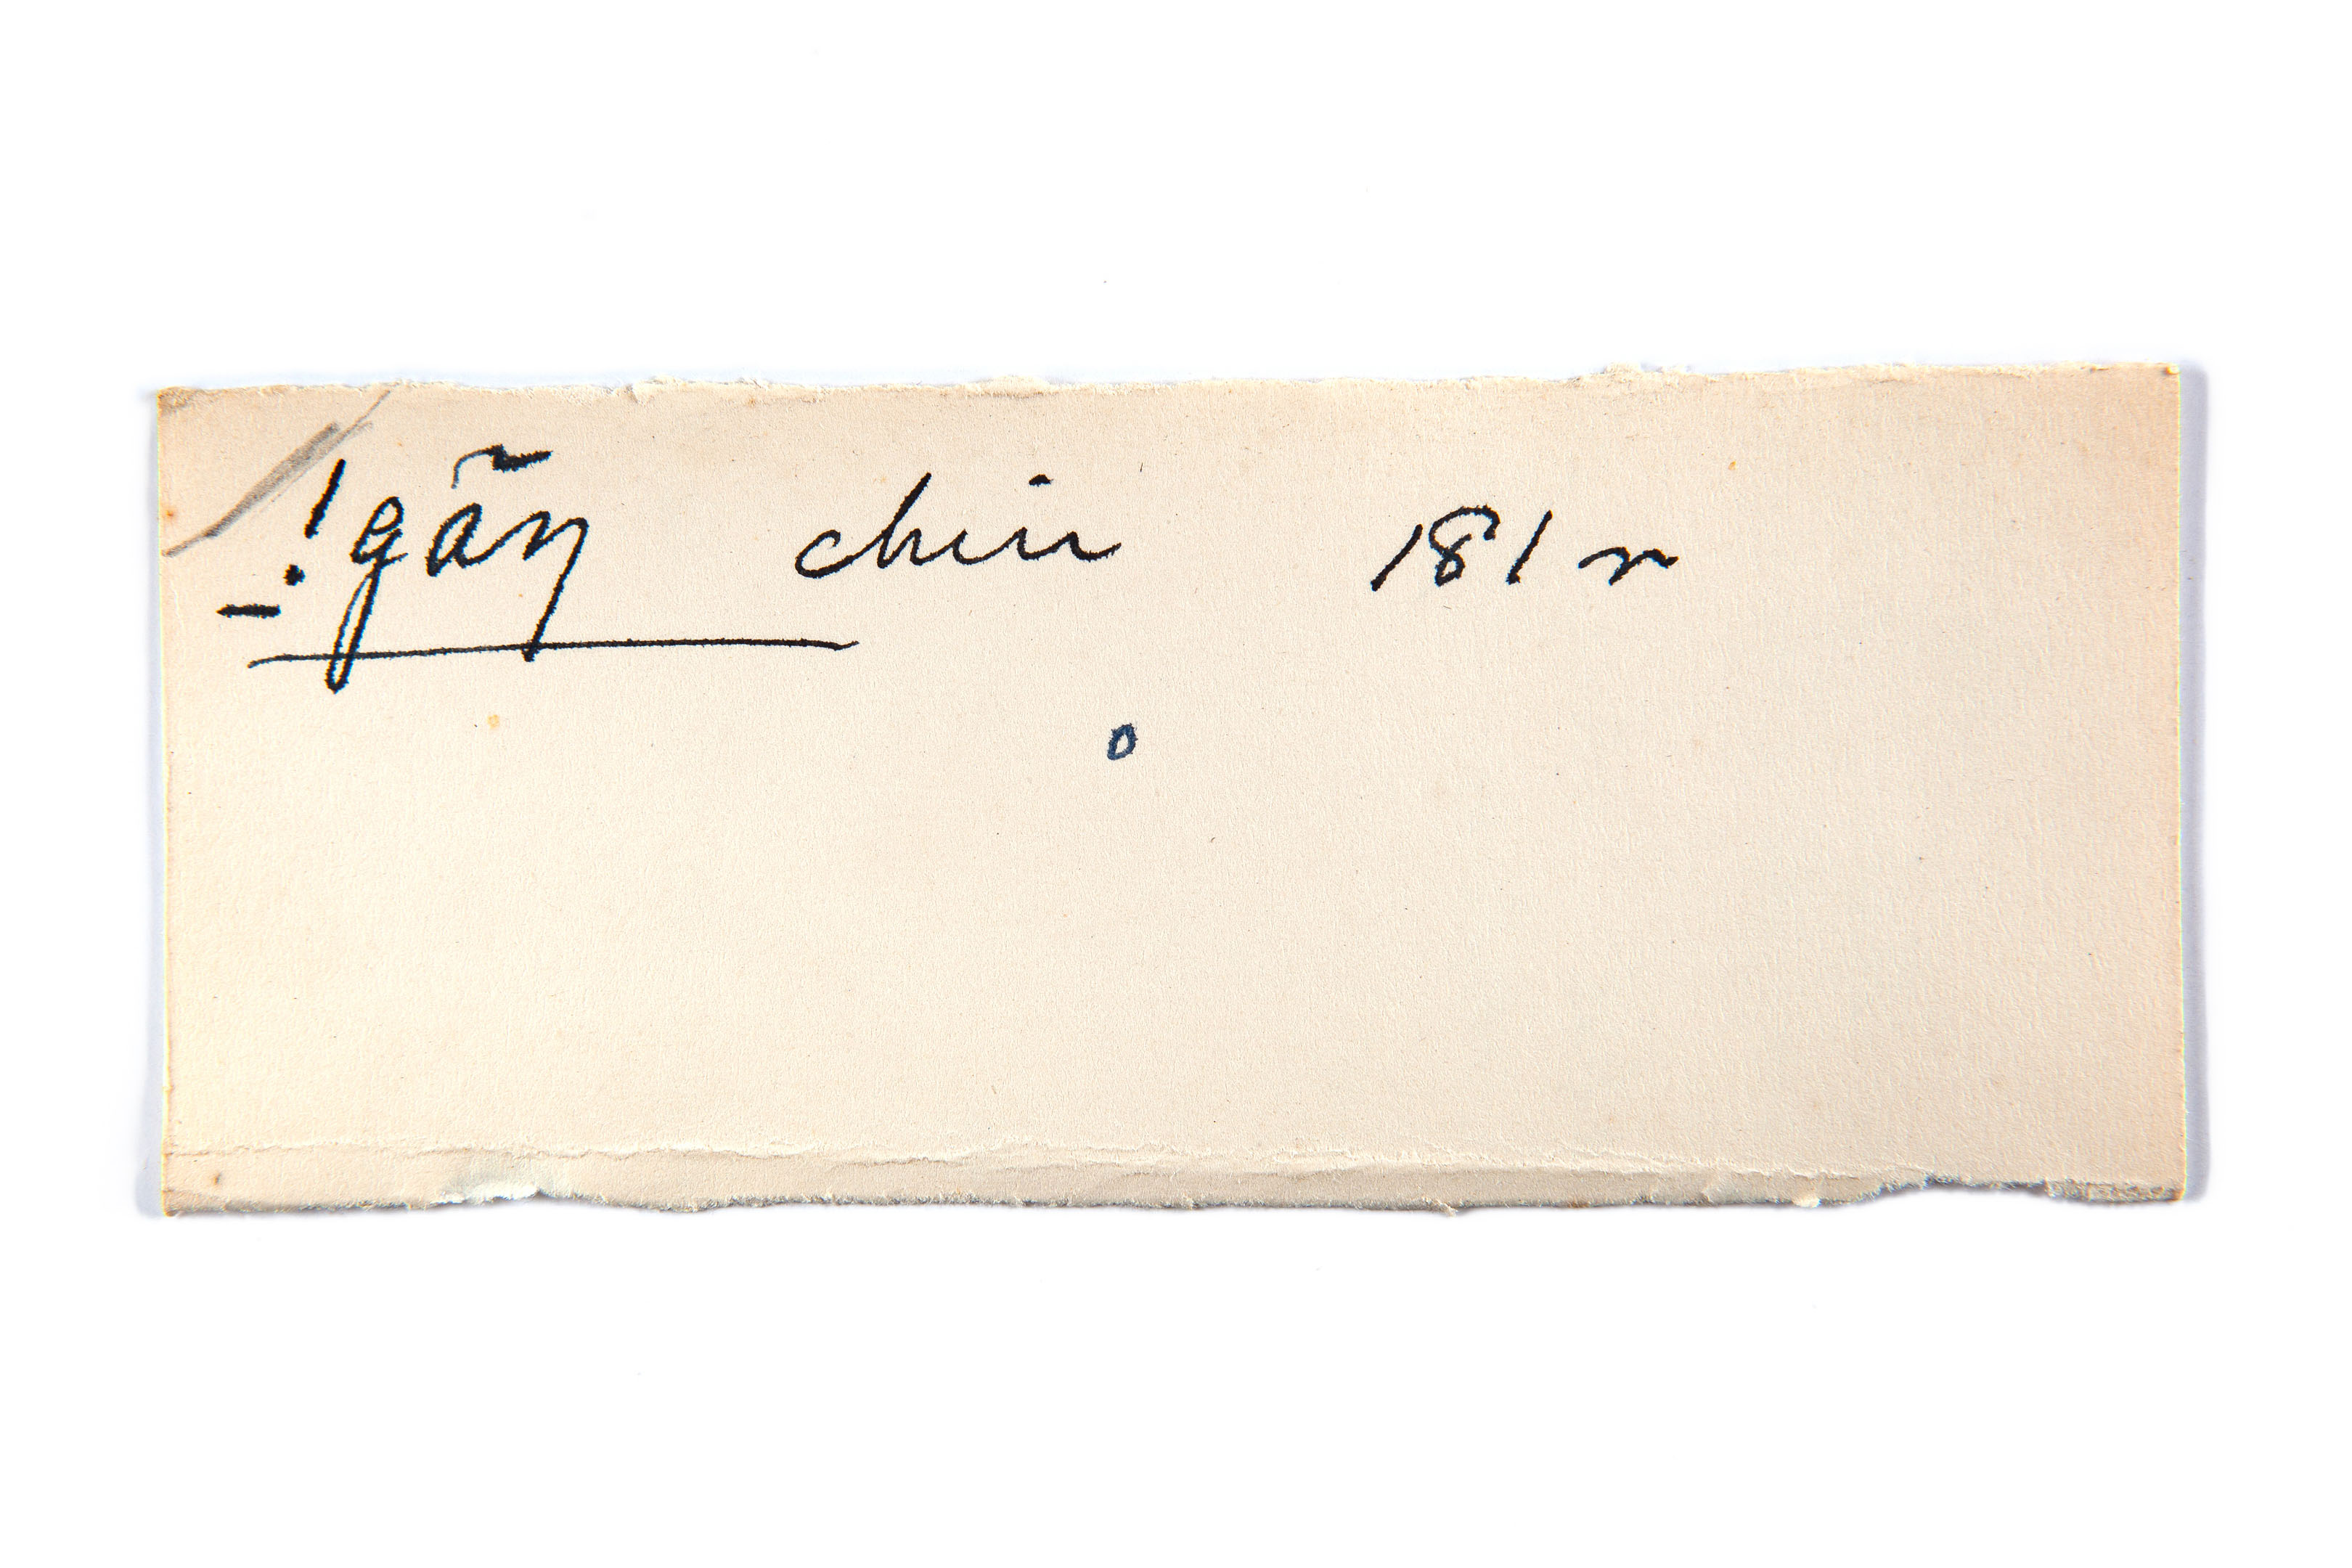 _!gãŋ chin 181 r
o